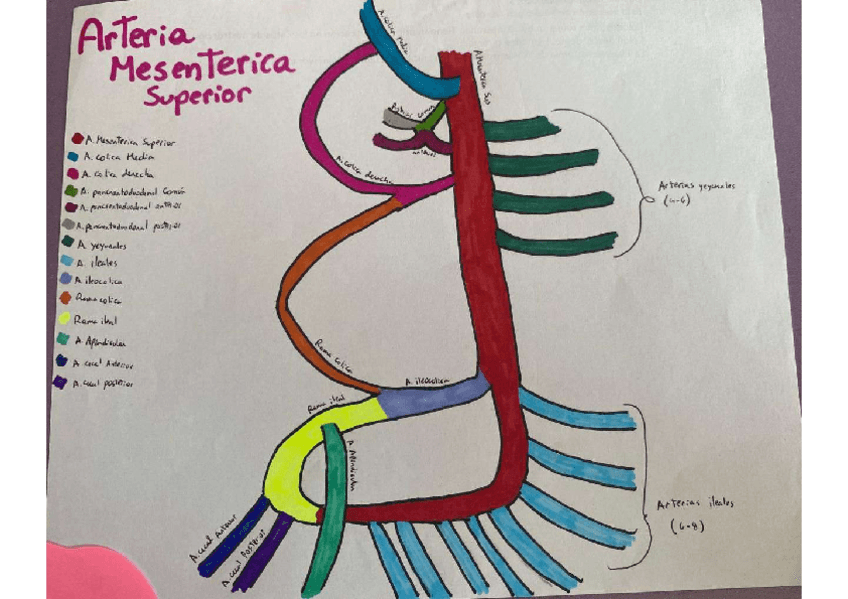 Arteria
Mesenterica
Superior
A. Mesenterica Superior
A. colica Media
A. colica derecha
A. pancreatoduodenal Común
A. pancreatoduodenal anterior
A. pancreatoduodenal posterior
A. yeyunales
A. ileales
A. ileocolica
Rama colica
Rama ileal
A. Apendicular
A. cecal Anterior
A. cecal posterior
A. colica media
A. colica derecha
Arterias yeyunales
Rama colica
A. ileocolica
Rama ileal
A. Apendicular
A. cecal Anterior
A. cecal Posterior
Arterias ileales